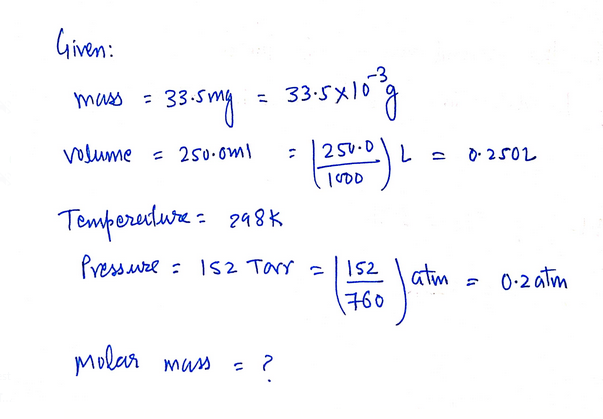 Given:
mass = 33.5mg = 33.5×10⁻³g
volume = 250.0ml = (250.0/1000) L = 0.250L
Temperature = 298K
Pressure = 152 Torr = (152/760) atm = 0.2 atm
Molar mass = ?